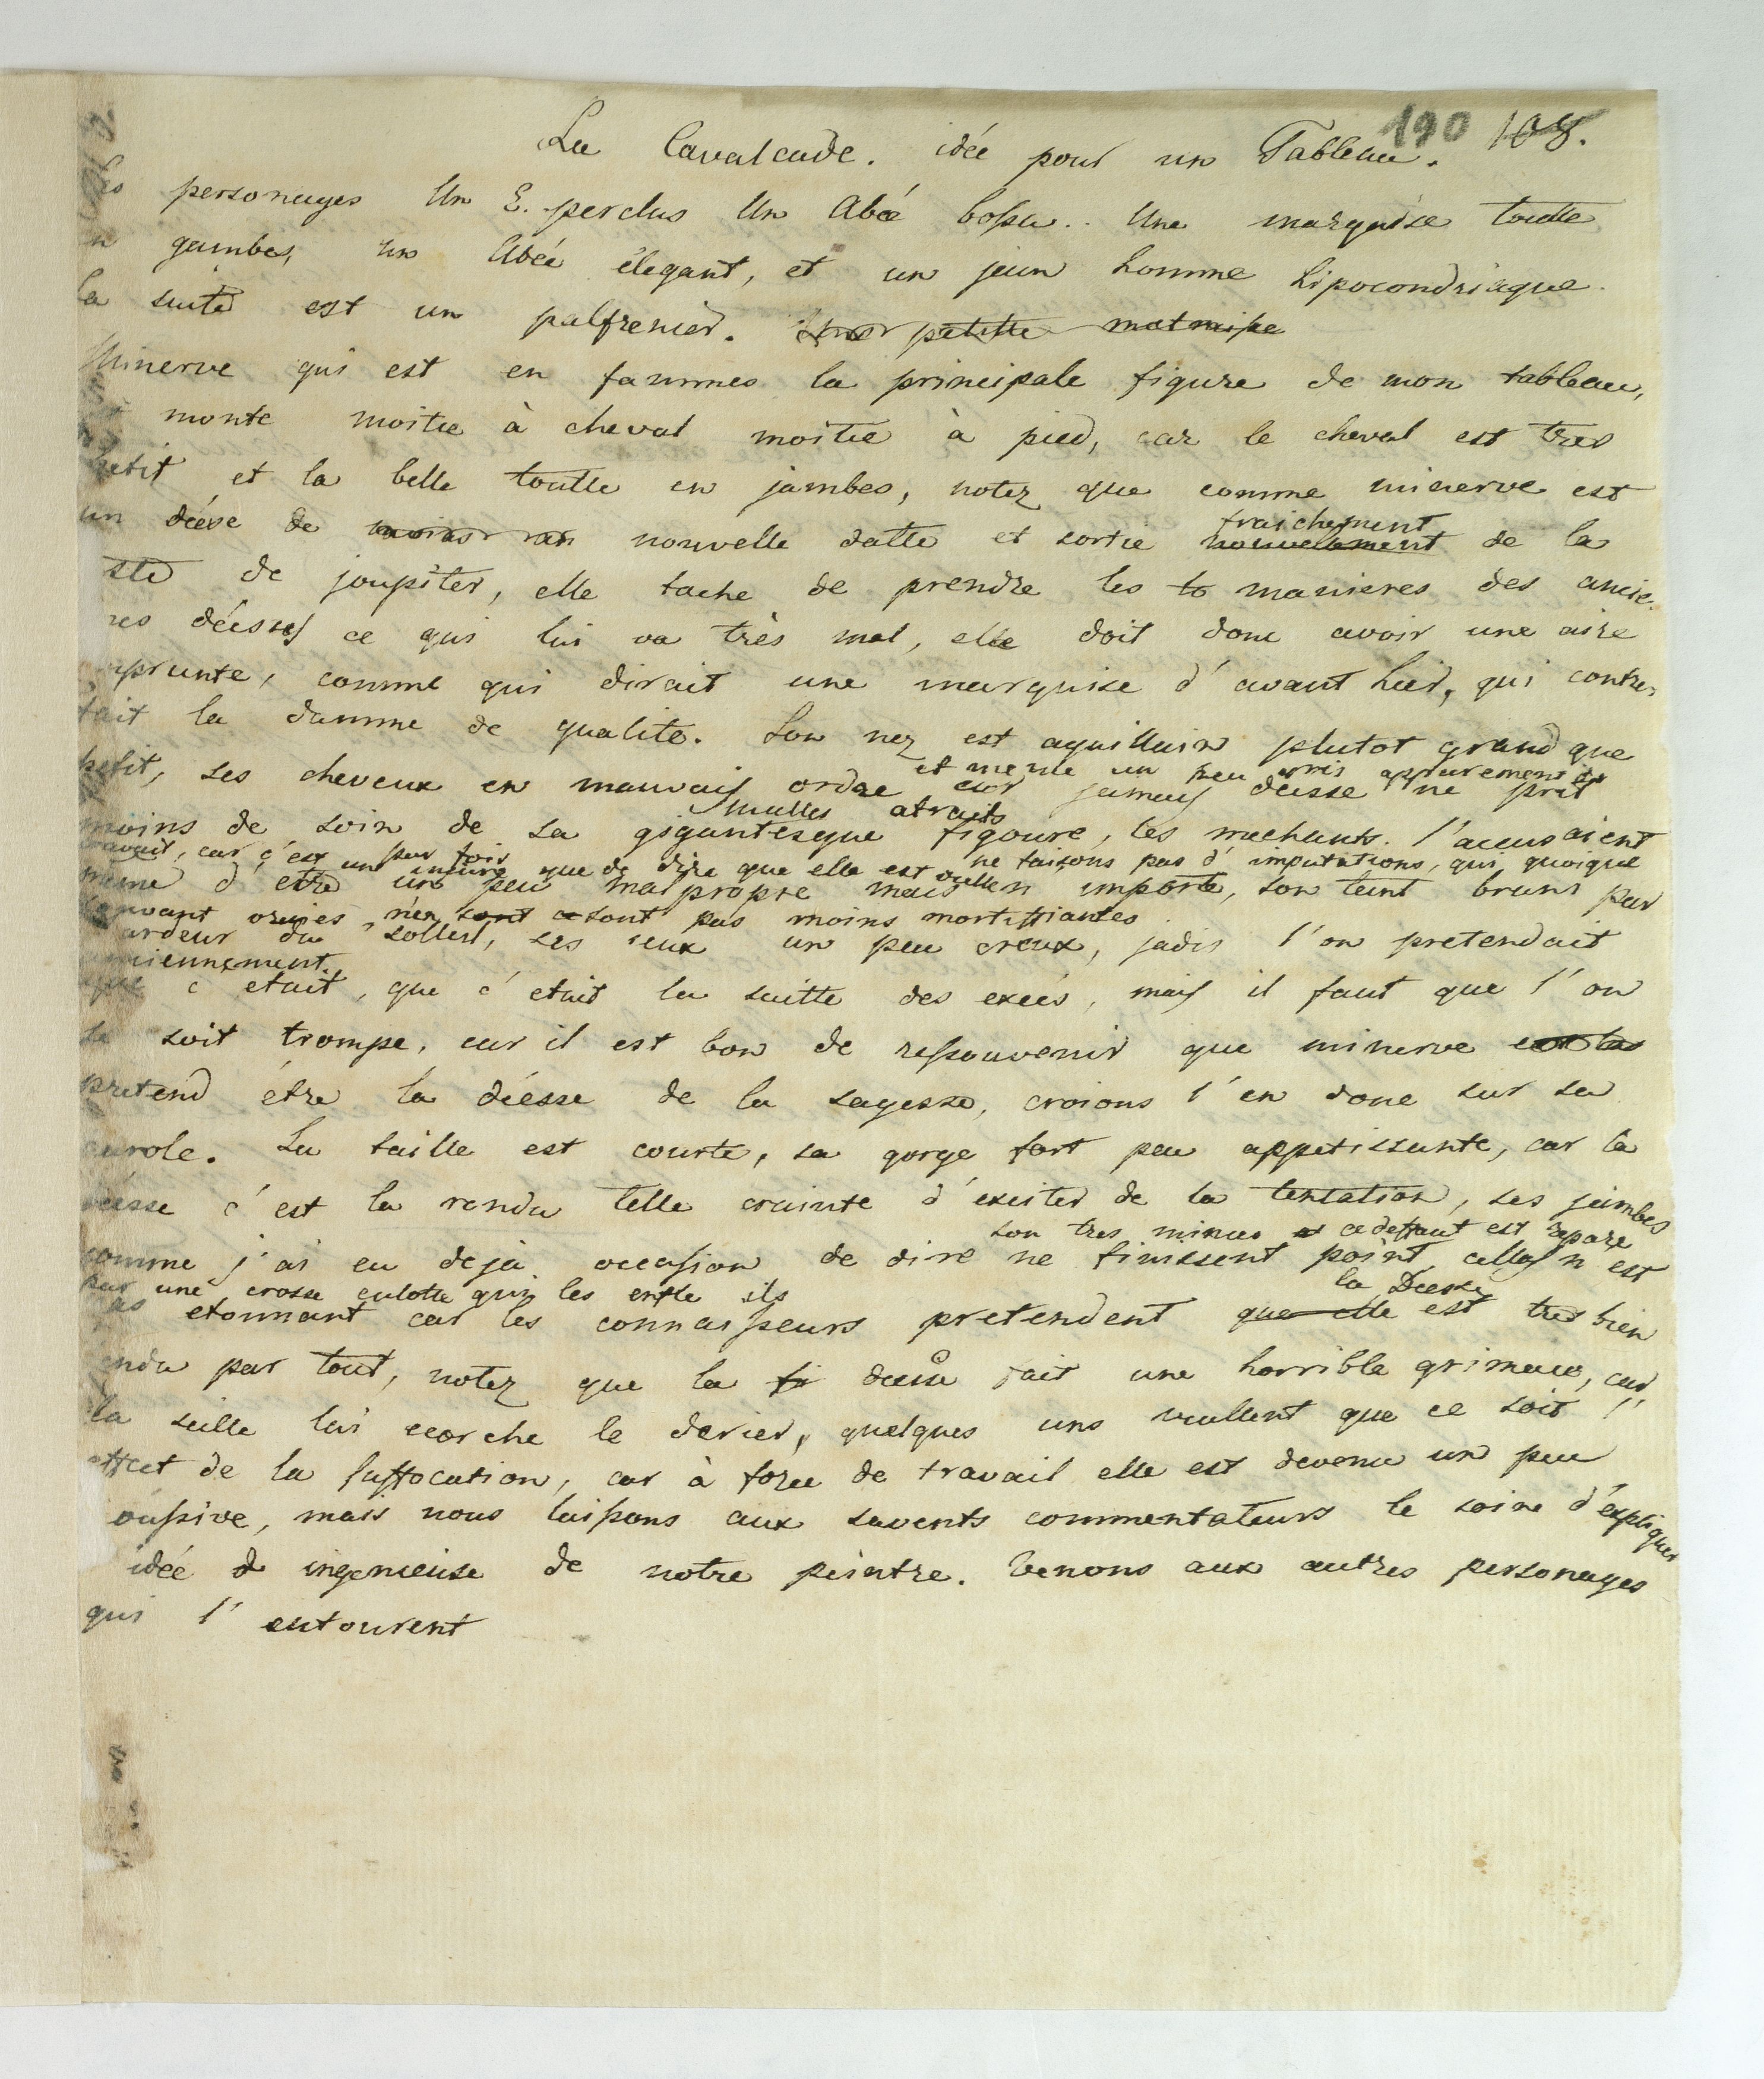 190 108.
La Cavalcade. idée pour un Tableau.
personages Un E. perclus Un Abée bossu.. Une marquise toutte
gambes, un Abée élegant, et un jeun homme hipocondriaque.
la suite est un palfrenier. petitte
Minerve qui est en fammes la principale figure de mon tableau,
monte moitie à cheval moitie à pied, car le cheval est tres
petit et la belle toutte en jambes, notez que comme minerve est
un déese de nouvelle datte et sortie nouvellement de la
fraichement
ste de joupiter, elle tache de prendre les to manieres des ancie
nes déesses ce qui lui va très mal, elle doit donc avoir une aire
mprunte, comme qui dirait une marquise d'avant hier, qui contre
fait la damme de qualite. Son nez est aquillain plutot grand que
petit, ses cheveux en mauvais ordre car jamais déesse ne prit
et meme un peu gris apparement
moins de soin de sa gigantesque figoure, les mechants l'accusaient
malles atraits
car c'est un injure que de dire que elle est ne faisons pas d'imputations, qui quoique
par fois
meme d'etre un peu malpropre mais n'importe, son teint bruni par
souvant oruies n'en sont pas moins mortiffiantes
ardeur du solleil, ses ieux un peu creux, jadis l'on pretendait
anciennement
que c etait, que c'etait la suitte des exces, mais il faut que l'on
se soit trompe, car il est bon de ressouvenir que minerve est la
pretend être la déesse de la sagesse, croions l'en donc sur sa
parole. Sa taille est courte, sa gorge fort peu appetissante, car la
déesse c'est la rendu telle crainte d'exciter de la tentation, ses jambes
son tres minces et ce deffaut est repare
comme j'ai eu deja occasion de dire ne finissent point, cella n'est
par une crosse culotte qui les enfle ils
pas etonnant car les connaisseurs pretendent que elle est tres bien
la Deesse
fendu par tout, notez que la fi deesse fait une horrible grimace, car
la selle lui ecorche le derier, quelques uns veullent que ce soit l'
effect de la suffocation, car à force de travail elle est devenu un peu
oussive, mais nous laissons aux savents commentateurs le soin d'expliquer
idée d ingenieuse de notre peintre. Venons aux autres personages
qui l'entourent